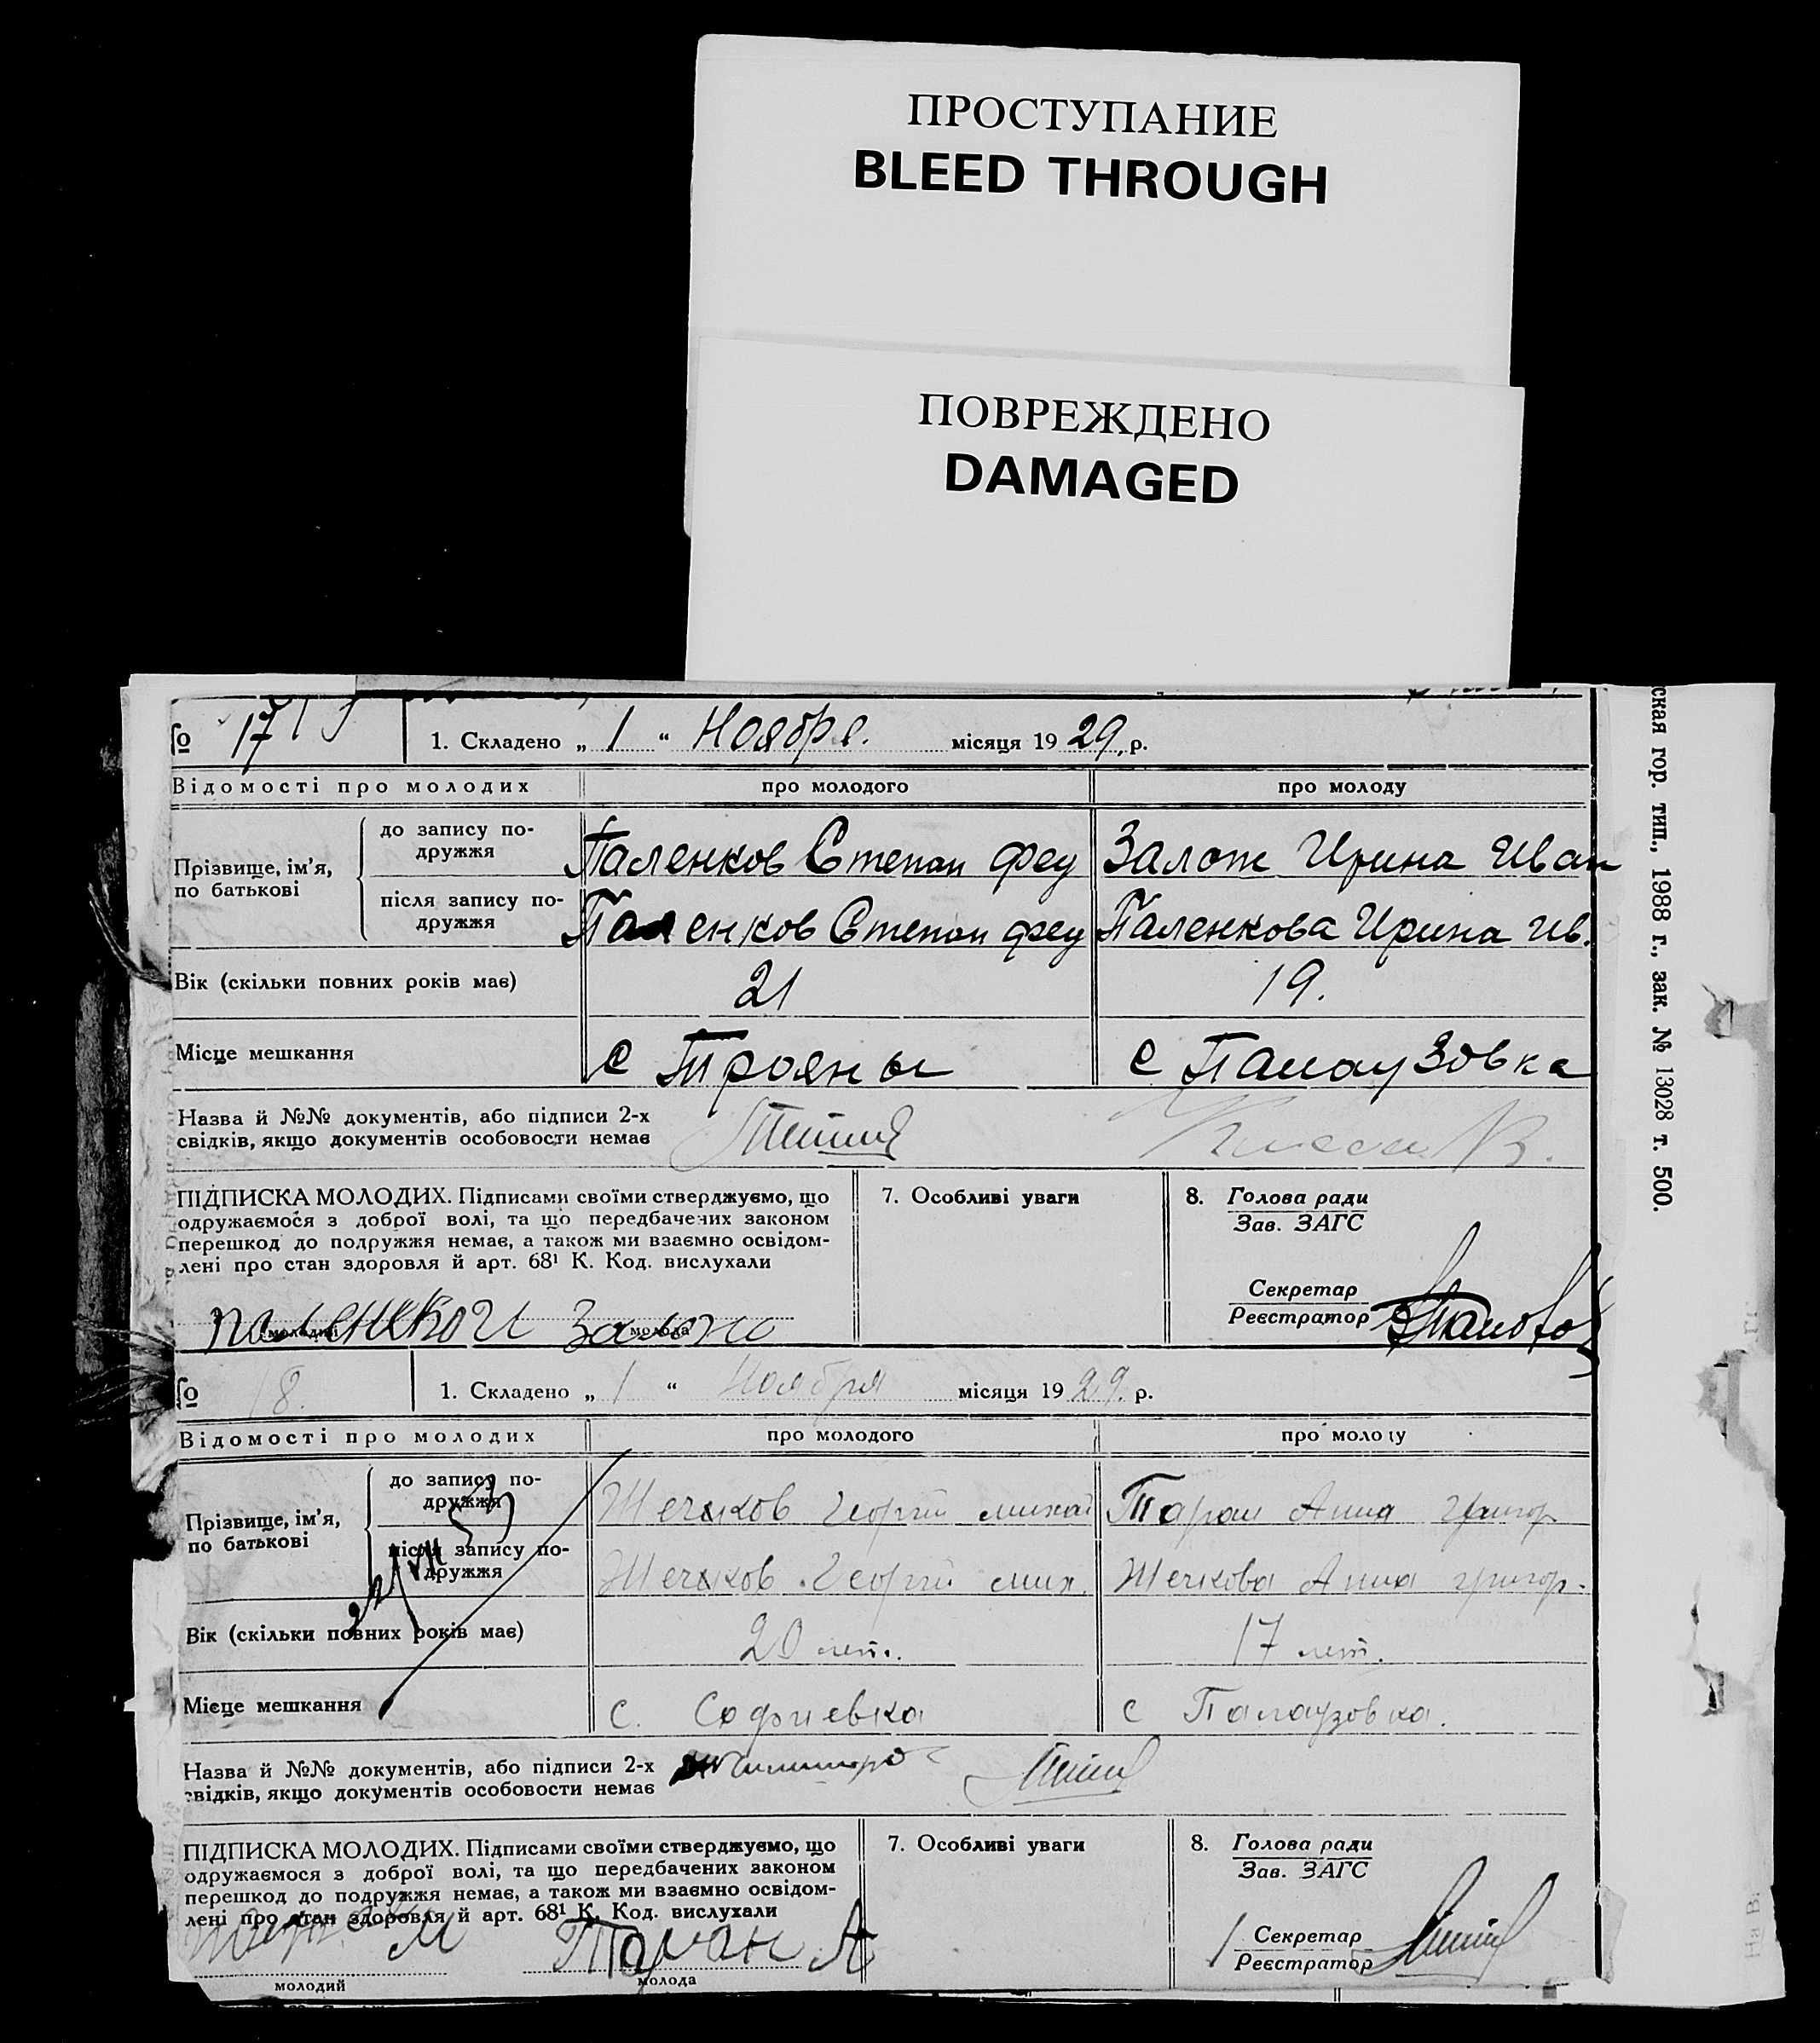 ПРОСТУПАНИЕ
BLEED THROUGH
ПОВРЕЖДЕНО
DAMAGED
ская гор. тип., 1988 г., зак. № 13028 т. 500.
№ 17 1. Складено „ 1 “ Ноября. місяця 19 29, р.
Відомості про молодих про молодого про молоду
Прізвище, ім'я, по батькові
до запису по-дружжя Паленков Степан Фед Залож Ирина Иван
після запису по-дружжя Паленков Степан фед Паленкова Ирина Ив.
Вік (скільки повних років має) 21 19.
Місце мешкання с Трояны с Палаузовка
Назва й №№ документів, або підписи 2-х
свідків, якщо документів особовости немає
ПІДПИСКА МОЛОДИХ. Підписами своїми стверджуємо, що
одружаємося з доброї волі, та що передбачених законом
перешкод до подружжя немає, а також ми взаємно освідом-
лені про стан здоровля й арт. 68¹ К. Код. вислухали
7. Особливі уваги
8. Голова ради
Зав. ЗАГС
Секретар
Реєстратор
молодий молода
№ 18. 1. Складено „ 1 “ Ноября місяця 19 29. р.
Відомості про молодих про молодого про молоду
Прізвище, ім'я, по батькові
до запису по-дружжя Жечков Георгий михай Таран Анна григор
після запису по-дружжя Жечков Георгий мих. Жечкова Анна григор.
Вік (скільки повних років має) 20 лет. 17 лет.
Місце мешкання с. Софиевка с Палаузовка.
Назва й №№ документів, або підписи 2-х
свідків, якщо документів особовости немає
ПІДПИСКА МОЛОДИХ. Підписами своїми стверджуємо, що
одружаємося з доброї волі, та що передбачених законом
перешкод до подружжя немає, а також ми взаємно освідом-
лені про стан здоровля й арт. 68¹ К. Код. вислухали
Таран А
молодий молода
7. Особливі уваги
8. Голова ради
Зав. ЗАГС
Секретар
Реєстратор